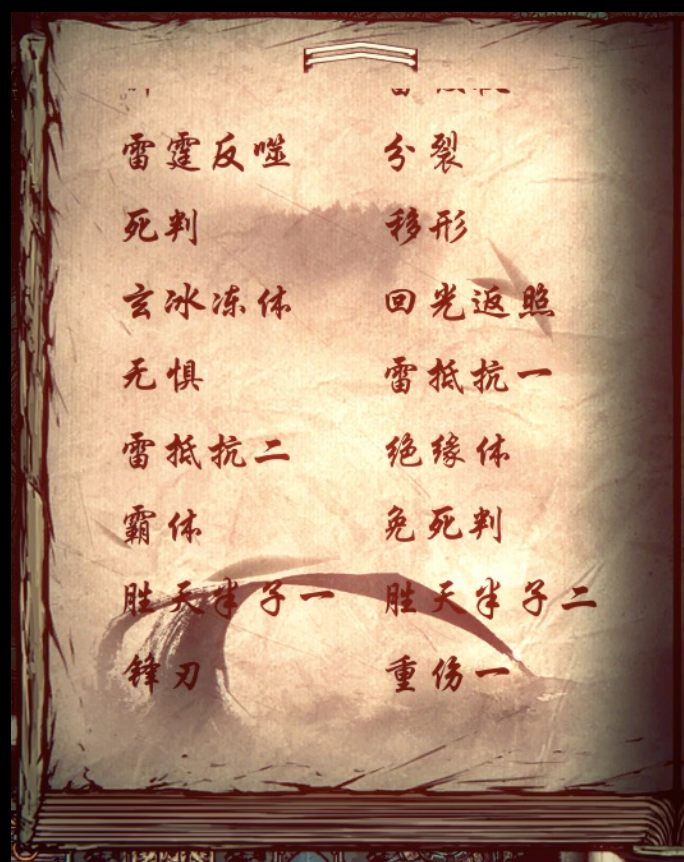 雷霆反噬 分裂
死判 移形
玄冰冻体 回光返照
无惧 雷抵抗一
雷抵抗二 绝缘体
霸体 免死判
胜天半子一 胜天半子二
锋刃 重伤一